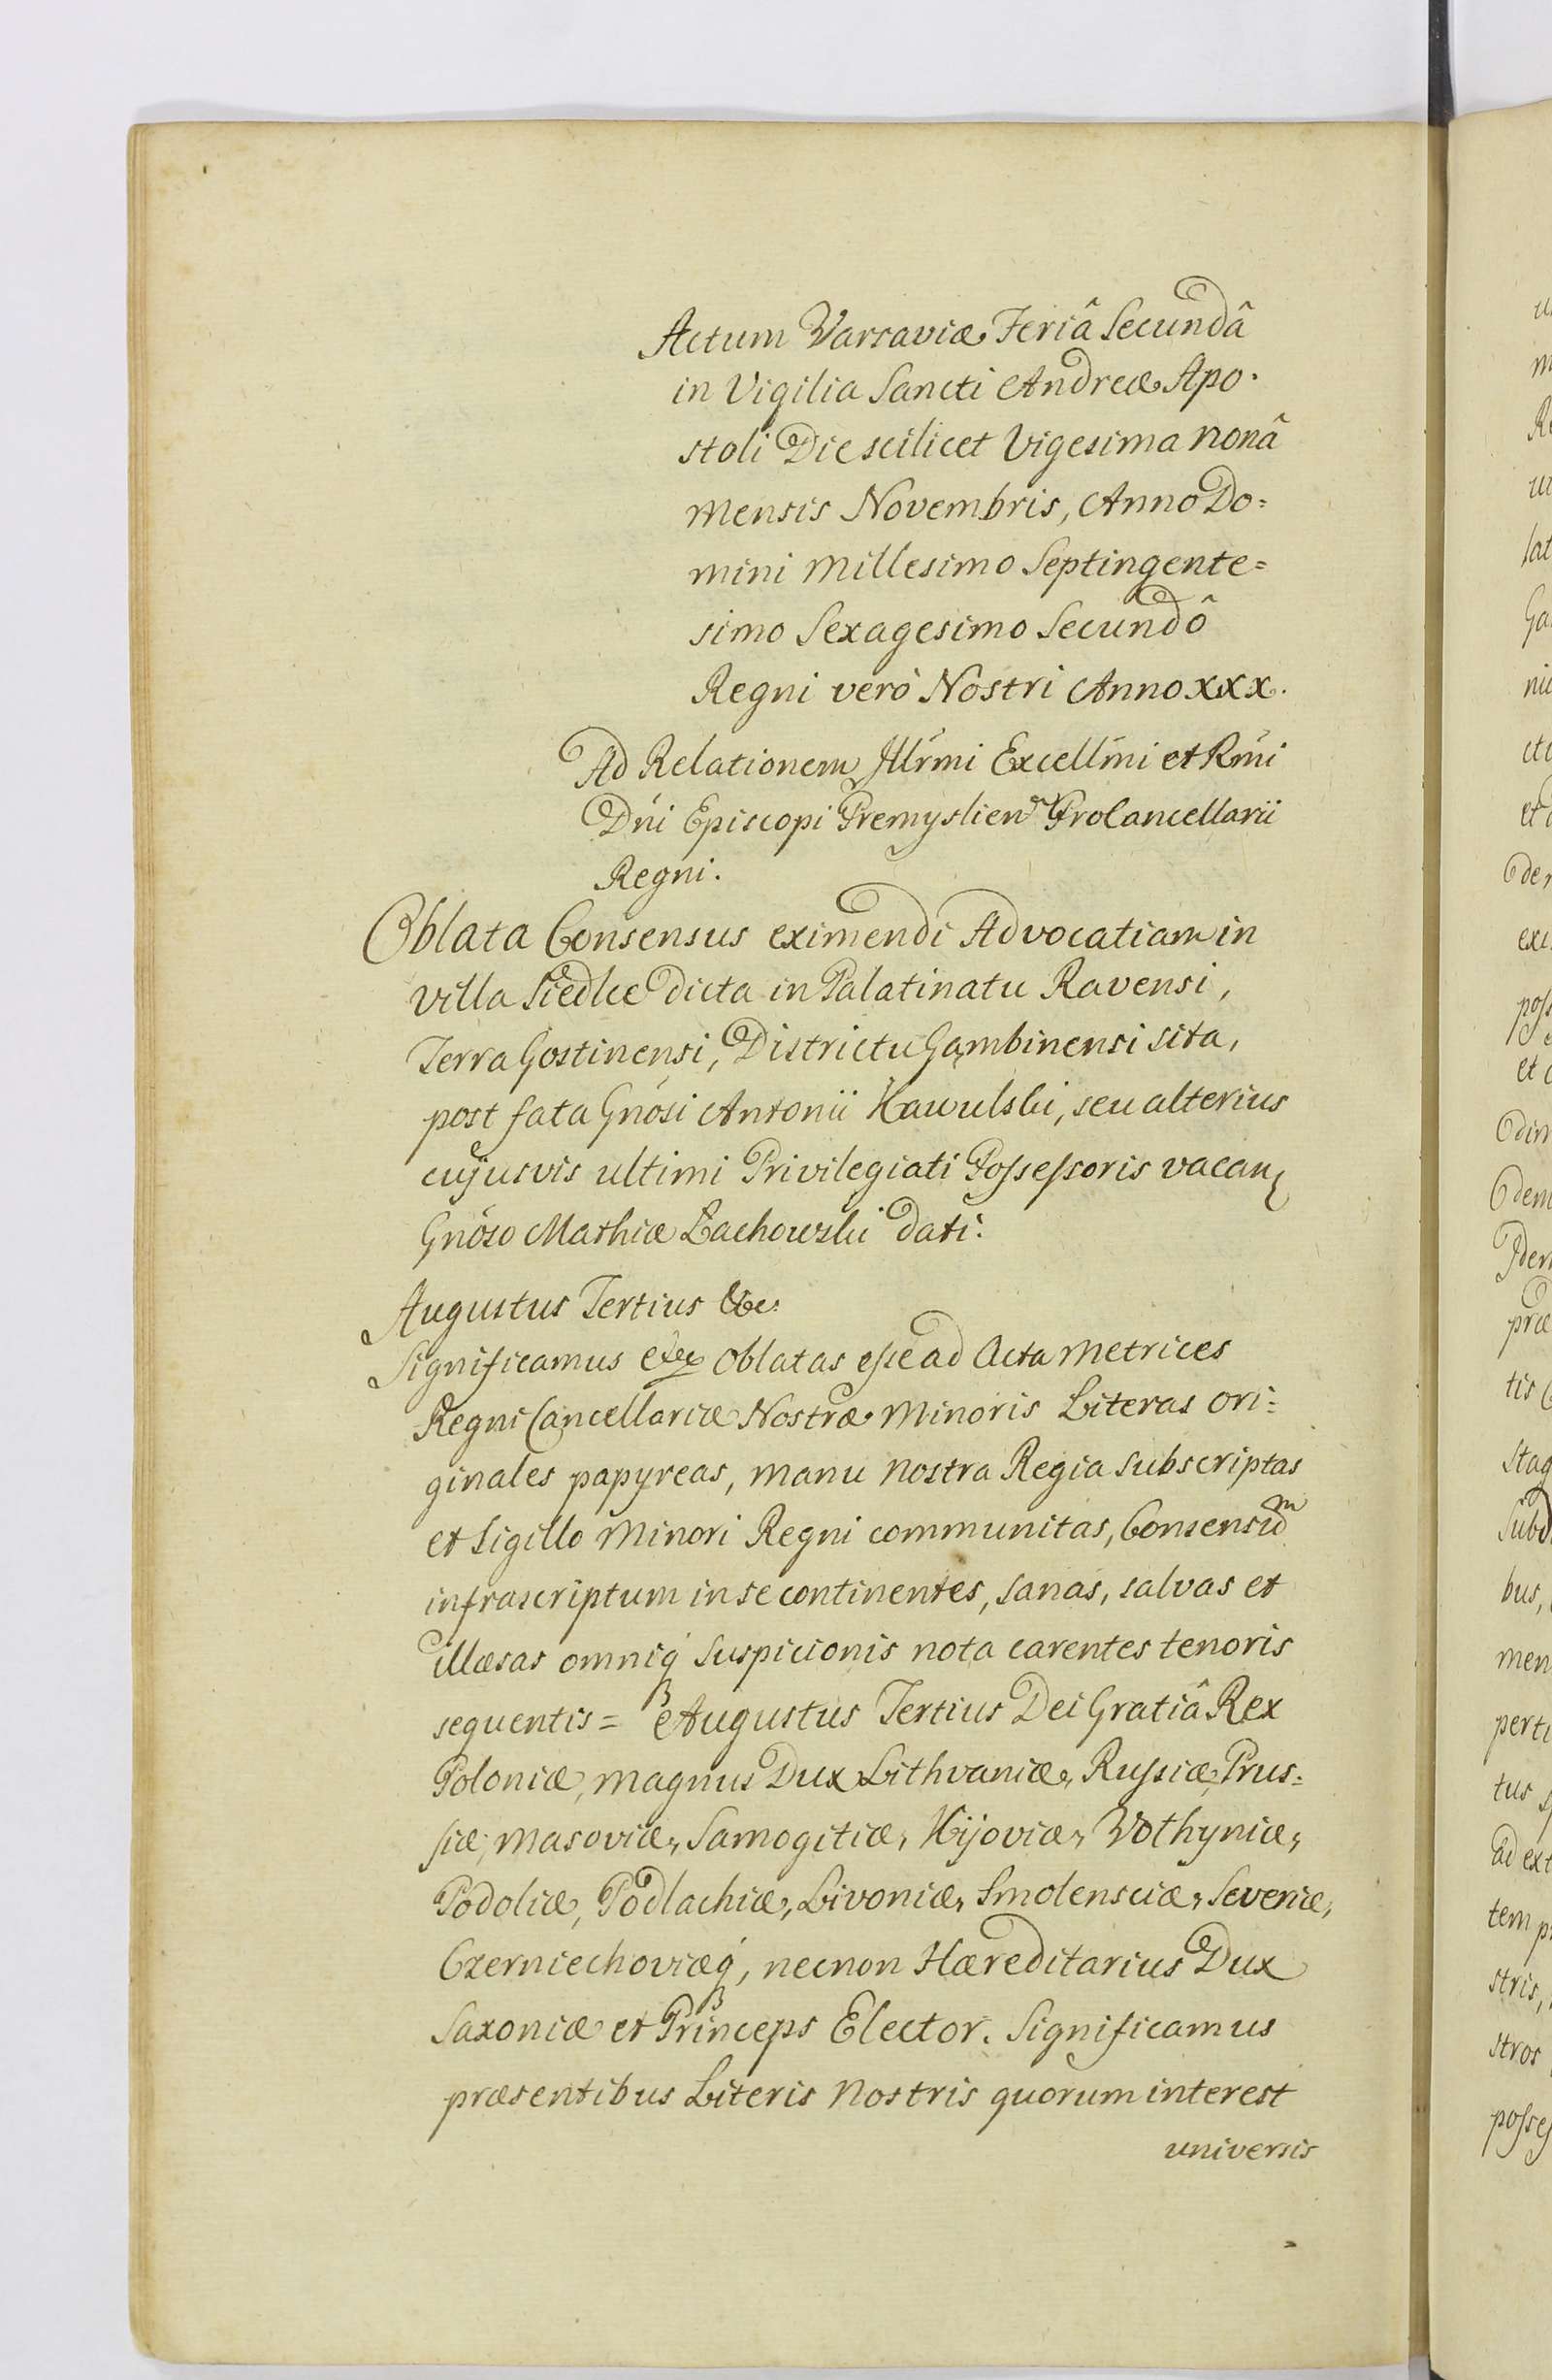 Actum Varsaviæ Feriâ Secundâ
in Vigilia Sancti Andreæ Apo-
stoli Die scilicet Vigesima nonâ
mensis Novembris, Anno Do=
mini Millesimo Septingente=
simo Sexagesimo Secundô
Regni verò Nostri Anno XXX.
Ad Relationem Illrmi Excellmi et Rmi
Dni Episcopi Premyslien ProCancellarii
Regni.
Oblata Consensus eximendi Advocatiam in
villa Siedlce dicta in Palatinatu Ravensi,
Terra Gostinensi, Districtu Gąmbinensi sita,
post fata Gnosi Antonii Kawulski, seu alterius
cujusvis ultimi Privilegiati Possessoris vacan
Gnoso Mathiæ Łachowski dati.
Augustus Tertius &c:
Significamus Oblatas esse ad Acta Metrices
Regni Cancellariæ Nostræ Minoris Literas ori=
ginales papyreas, manu nostra Regia subscriptas
et Sigillo Minori Regni communitas, Consensum
infrascriptum in se continentes, sanas, salvas et
illæsas omniq suspicionis nota carentes tenoris
sequentis = Augustus Tertius Dei Gratiâ Rex
Poloniæ, Magnus Dux Lithvaniæ, Russiæ, Prus=
siæ, Masoviæ, Samogitiæ, Kijoviæ, Volhyniæ,
Podoliæ, Podlachiæ, Livoniæ, Smolensciæ, Severiæ,
Czerniechoviæq, necnon Hæreditarius Dux
Saxoniæ et Princeps Elector. Significamus
præsentibus Literis Nostris quorum interest
universis